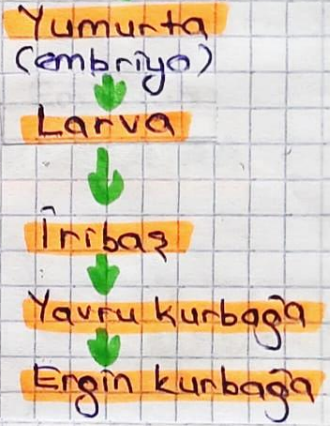 Yumurta
(embriyo)
Larva
İribaş
Yavru kurbağa
Ergin kurbağa